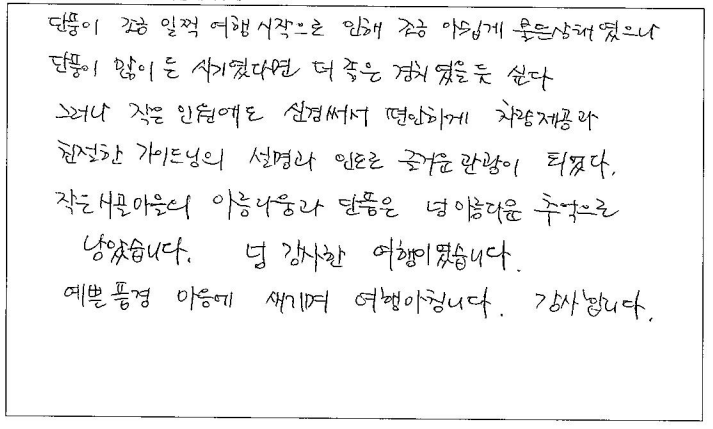 단풍이 조금 일찍 여행 시작으로 인해 조금 아쉽게 물든상태 였으나
단풍이 많이 든 시기였다면 더 좋은 경치 였을듯 싶다
그러나 작은 인원에도 신경써서 편안하게 차량제공과
친절한 가이드님의 설명과 인도로 즐거운 관광이 되었다.
작은시골마을의 아름다움과 단풍은 넘 아름다운 추억으로
남았습니다. 넘 감사한 여행이였습니다.
예쁜 풍경 마음에 새기며 여행마칩니다. 감사합니다.